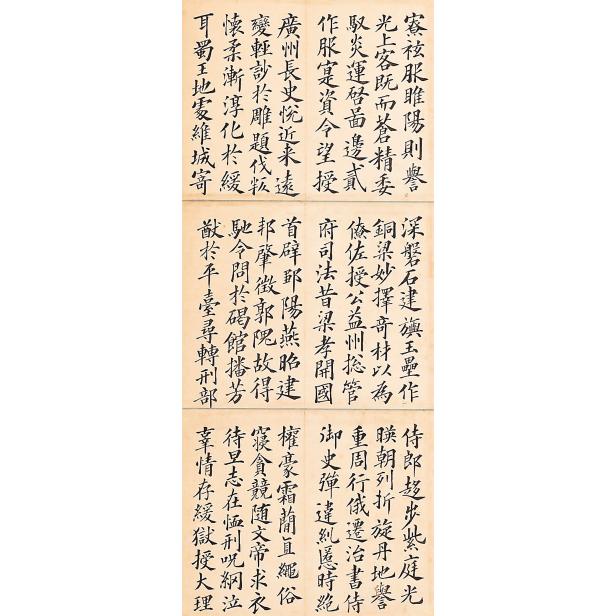 寮袨服睢陽則譽
光上客既而蒼精委
馭炎運啓啚邊貳
作服寔資令望授
廣州長史悅近来遠
變輕訬於雕題伐叛
懷柔漸淳化於緩
耳蜀王地處維城寄
深磐石建旟玉壘作
銅梁妙擇奇材以為
僚佐授公益州捴管
府司法昔梁孝開國
首辟鄒陽燕昭建
邦肇徵郭隗故得
馳令問於碣館播芳
猷於平臺尋轉刑部
侍郎趍步紫庭光
暎朝列折旋丹地譽
重周行俄遷治書侍
御史彈違糺慝時絶
權豪霜簡直繩俗
寑貪競随文帝求衣
待早志在恤刑呪網泣
辜情存緩獄授大理